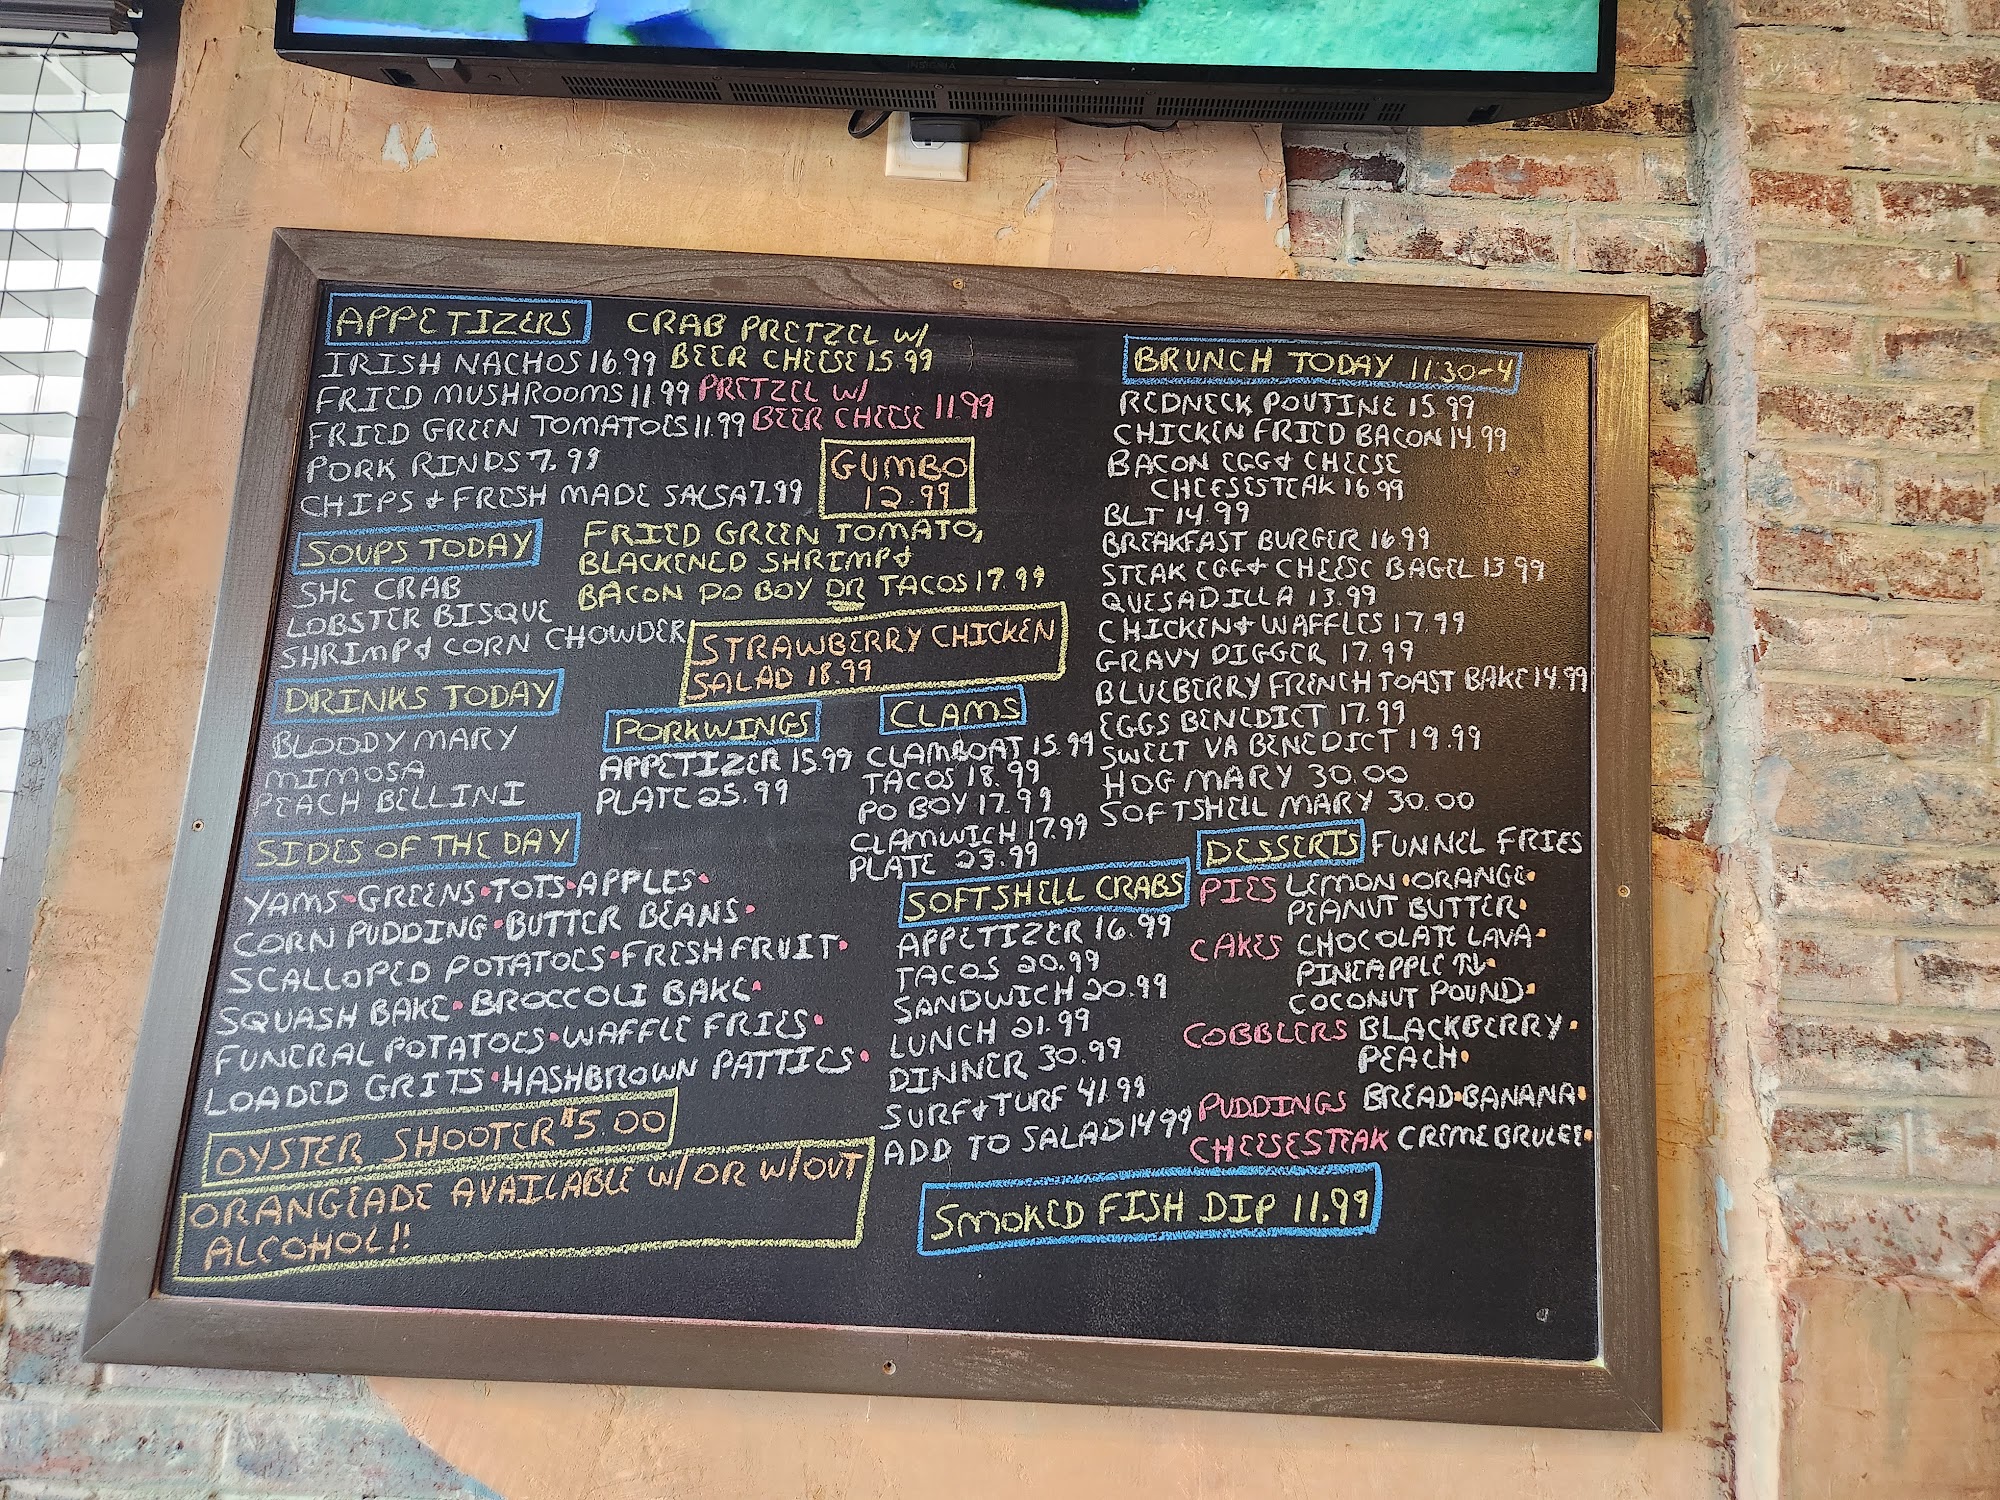 APPETIZERS
IRISH NACHOS 16.99
FRIED MUSHROOMS 11.99
FRIED GREEN TOMATOES 11.99
PORK RINDS 7.99
CHIPS & FRESH MADE SALSA 7.99
CRAB PRETZEL W/
BEER CHEESE 15.99
PRETZEL W/
BEER CHEESE 11.99
GUMBO
12.99
SOUPS TODAY
SHE CRAB
LOBSTER BISQUE
SHRIMP & CORN CHOWDER
FRIED GREEN TOMATO,
BLACKENED SHRIMP &
BACON PO BOY OR TACOS 17.99
STRAWBERRY CHICKEN
SALAD 18.99
DRINKS TODAY
BLOODY MARY
MIMOSA
PEACH BELLINI
PORKWINGS
APPETIZER 15.99
PLATE 25.99
CLAMS
CLAMBOAT 15.99
TACOS 18.99
PO BOY 17.99
CLAMWICH 17.99
PLATE 23.99
SIDES OF THE DAY
YAMS • GREENS • TOTS • APPLES •
CORN PUDDING • BUTTER BEANS •
SCALLOPED POTATOES • FRESH FRUIT •
SQUASH BAKE • BROCCOLI BAKE •
FUNERAL POTATOES • WAFFLE FRIES •
LOADED GRITS • HASHBROWN PATTIES •
OYSTER SHOOTER $5.00
ORANGEADE AVAILABLE W/ OR W/OUT
ALCOHOL!!
SOFTSHELL CRABS
APPETIZER 16.99
TACOS 20.99
SANDWICH 20.99
LUNCH 21.99
DINNER 30.99
SURF & TURF 41.99
ADD TO SALAD 14.99
SMOKED FISH DIP 11.99
BRUNCH TODAY 11:30-4
REDNECK POUTINE 15.99
CHICKEN FRIED BACON 14.99
BACON EGG & CHEESE
CHEESESTEAK 16.99
BLT 14.99
BREAKFAST BURGER 16.99
STEAK EGG & CHEESE BAGEL 13.99
QUESADILLA 13.99
CHICKEN & WAFFLES 17.99
GRAVY DIGGER 17.99
BLUEBERRY FRENCH TOAST BAKE 14.99
EGGS BENEDICT 17.99
SWEET VA BENEDICT 19.99
HOG MARY 30.00
SOFTSHELL MARY 30.00
DESSERTS FUNNEL FRIES
PIES LEMON • ORANGE •
PEANUT BUTTER •
CAKES CHOCOLATE LAVA •
PINEAPPLE •
COCONUT POUND •
COBBLERS BLACKBERRY •
PEACH •
PUDDINGS BREAD • BANANA •
CHEESESTEAK CREME BRULEE •